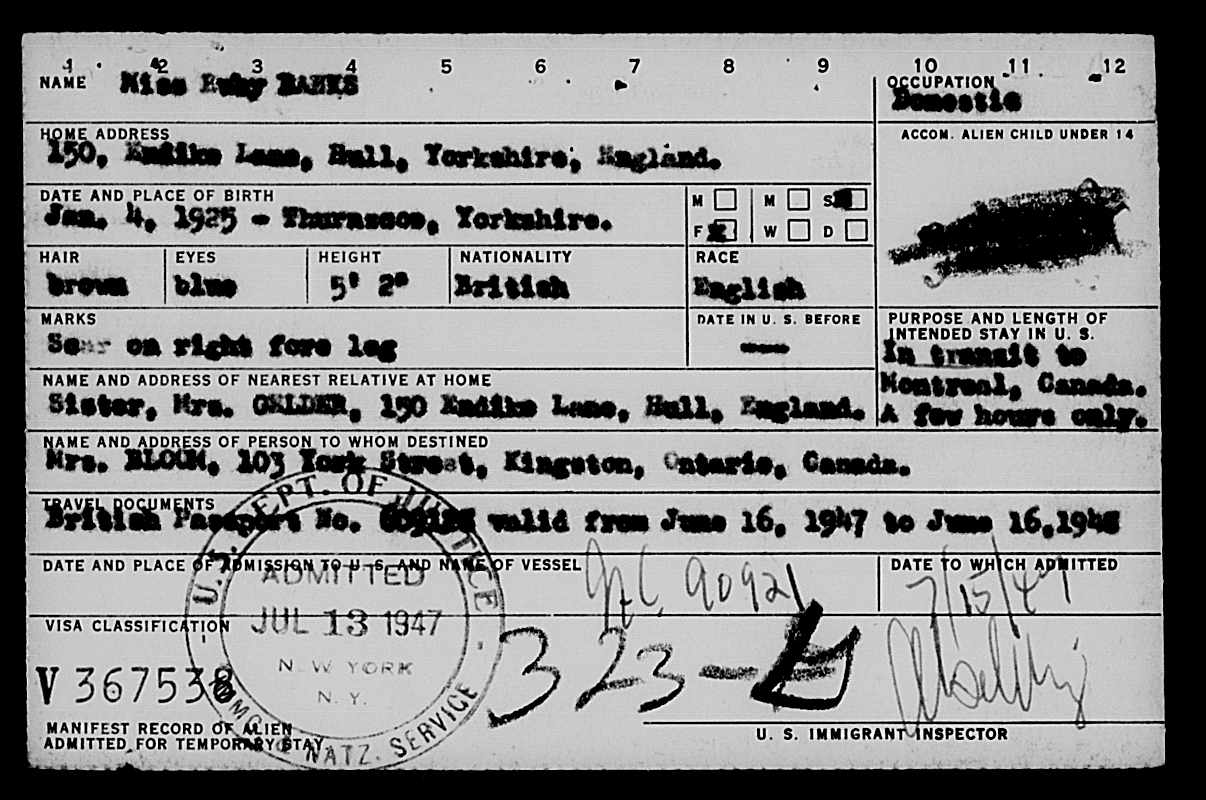 1 2 3 4 5 6 7 8 9 10 11 12
NAME Miss Ruby BANKS
OCCUPATION
Domestic
HOME ADDRESS
150, Endike Lane, Hull, Yorkshire, England.
ACCOM. ALIEN CHILD UNDER 14
DATE AND PLACE OF BIRTH
Jan. 4, 1925 - Thurnscoe, Yorkshire.
M M S
F W D
HAIR EYES HEIGHT NATIONALITY RACE
brown blue 5' 2" British English
MARKS
Scar on right fore leg
DATE IN U. S. BEFORE
PURPOSE AND LENGTH OF
INTENDED STAY IN U. S.
In transit to
Montreal, Canada.
A few hours only.
NAME AND ADDRESS OF NEAREST RELATIVE AT HOME
Sister, Mrs. GELDER, 150 Endike Lane, Hull, England.
NAME AND ADDRESS OF PERSON TO WHOM DESTINED
Mrs. BLOOM, 103 York Street, Kingston, Ontario, Canada.
TRAVEL DOCUMENTS
British Passport No. valid from June 16, 1947 to June 16, 1948
DATE AND PLACE OF ADMISSION TO U. S. AND NAME OF VESSEL
90921
DATE TO WHICH ADMITTED
7/15/47
U. S. DEPT. OF JUSTICE
ADMITTED
JUL 13 1947
NEW YORK
N. Y.
IMMIG. & NATZ. SERVICE
VISA CLASSIFICATION
V 367538
323-
MANIFEST RECORD OF ALIEN
ADMITTED FOR TEMPORARY STAY
U. S. IMMIGRANT INSPECTOR